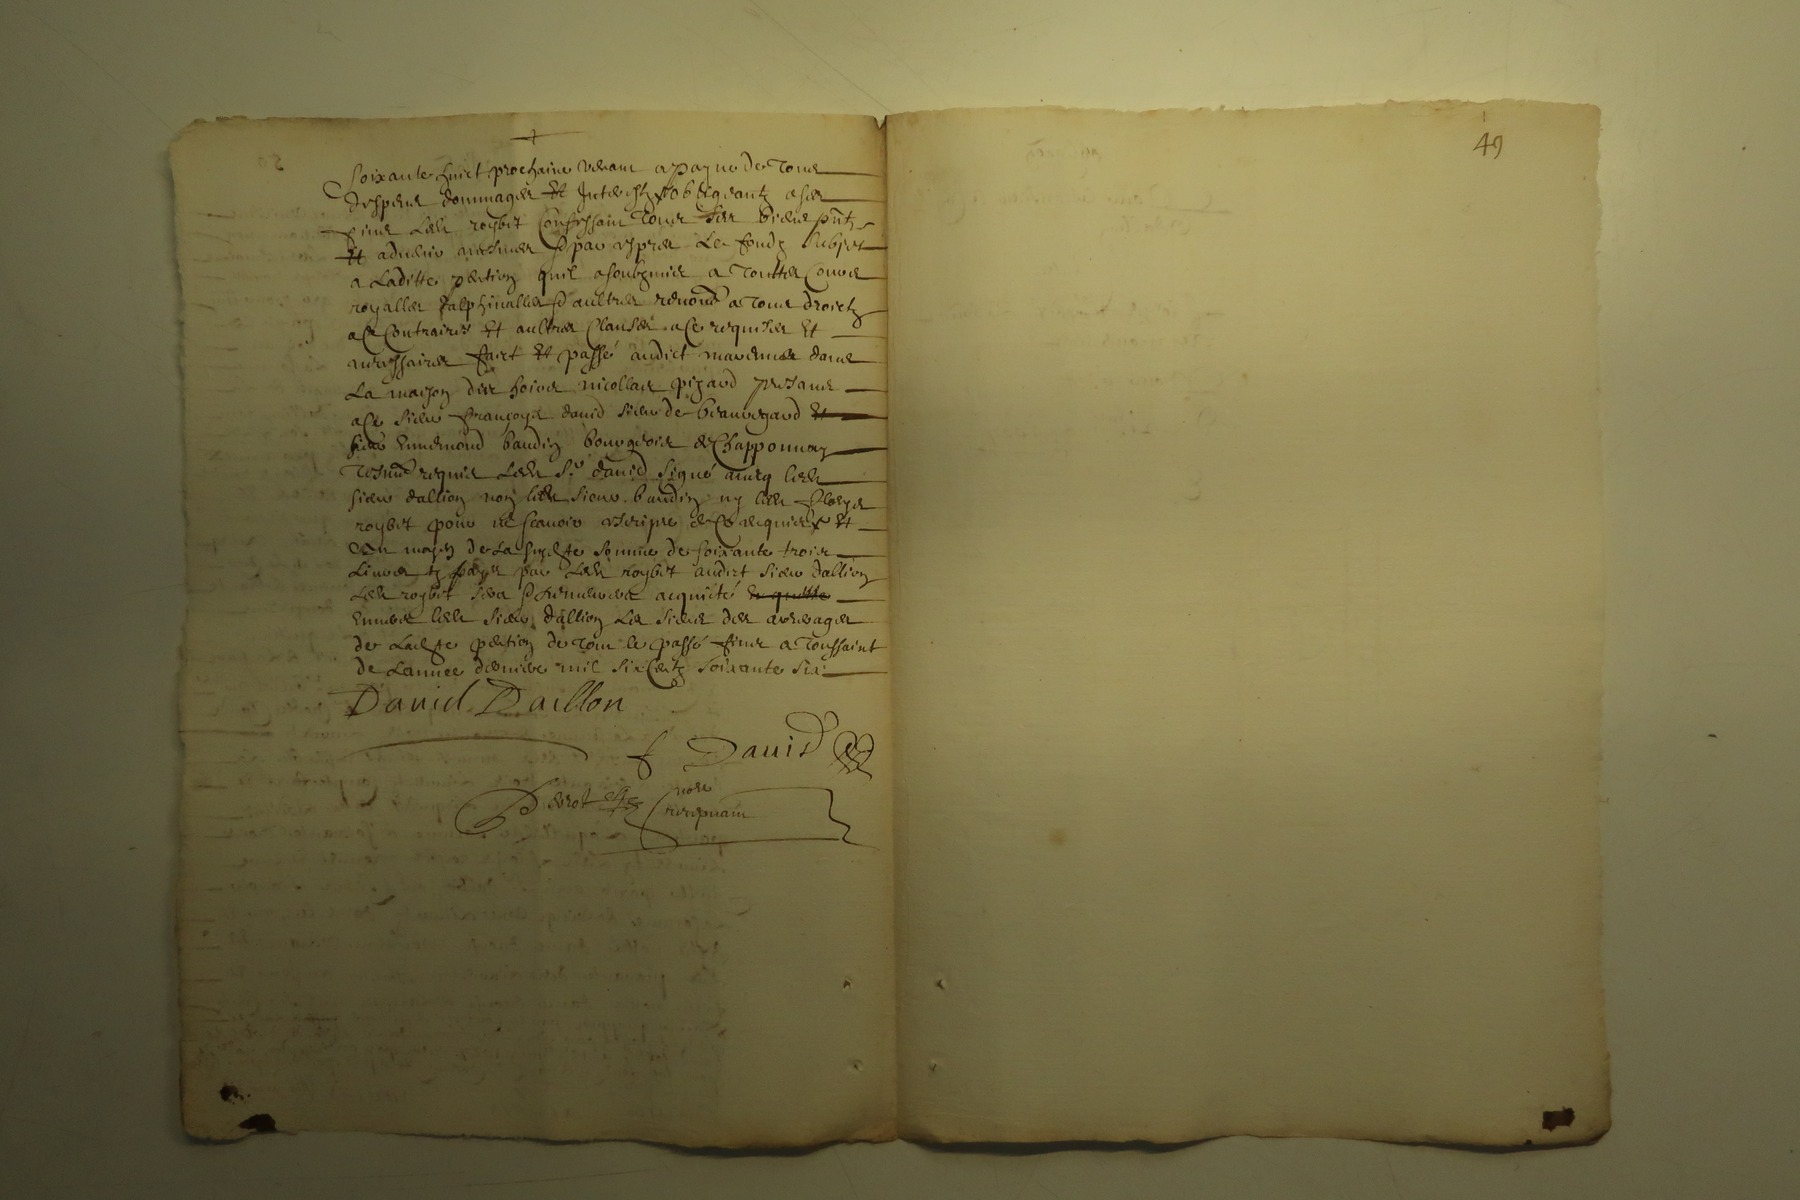 soixante huict prochaine venant a payne de tous
despens dommages et interestz obligeantz a ses
fins led roybet confessant tous ses biens pntz
et advenir mesmes par expres le fondz subject
a laditte pention quil a soubzmis a touttes cours
royalles dalphinalles et aultres renoncé a tous droictz
a ce contraires et aultres clauses a ce requises et
necessaires faict et passé audict marennes dans
la maison des hoirs nicollas pizard presans
a ce sieur françoys david sieur de beauregard et
sieur ennemond baudin bourgeois de chapponnay
tesmz requis led Sr david signé avecq led
sieur dallion non led sieur baudin ny led
roybet pour ne scavoir escripre de ce requis et
au moyen de la susdte somme de soixante trois
livres payé par led roybet audict sieur dallion
led roybet sera et demeurera acquicté et quitte
envers led sieur dallion des arrerages
de ladte pention de tout le passé fines a Toussaint
de lannee derniere mil six centz soixante six
David Daillon
f David
nore
recepvant
49